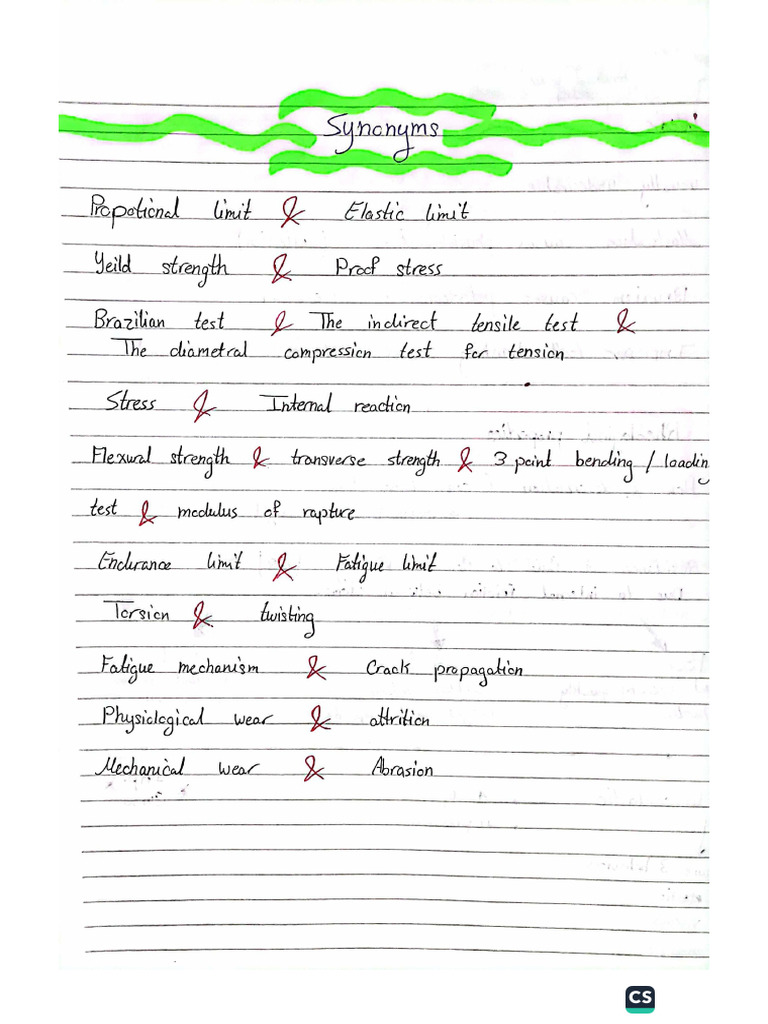 Synonyms
Propotional limit & Elastic limit
Yeild strength & Proof stress
Brazilian test & The indirect tensile test &
The diametral compression test for tension
Stress & Internal reaction
Flexural strength & transverse strength & 3 point bending / loading
test & modulus of rapture
Endurance limit & Fatigue limit
Torsion & twisting
Fatigue mechanism & Crack propagation
Physiological wear & attrition
Mechanical wear & Abrasion
CS